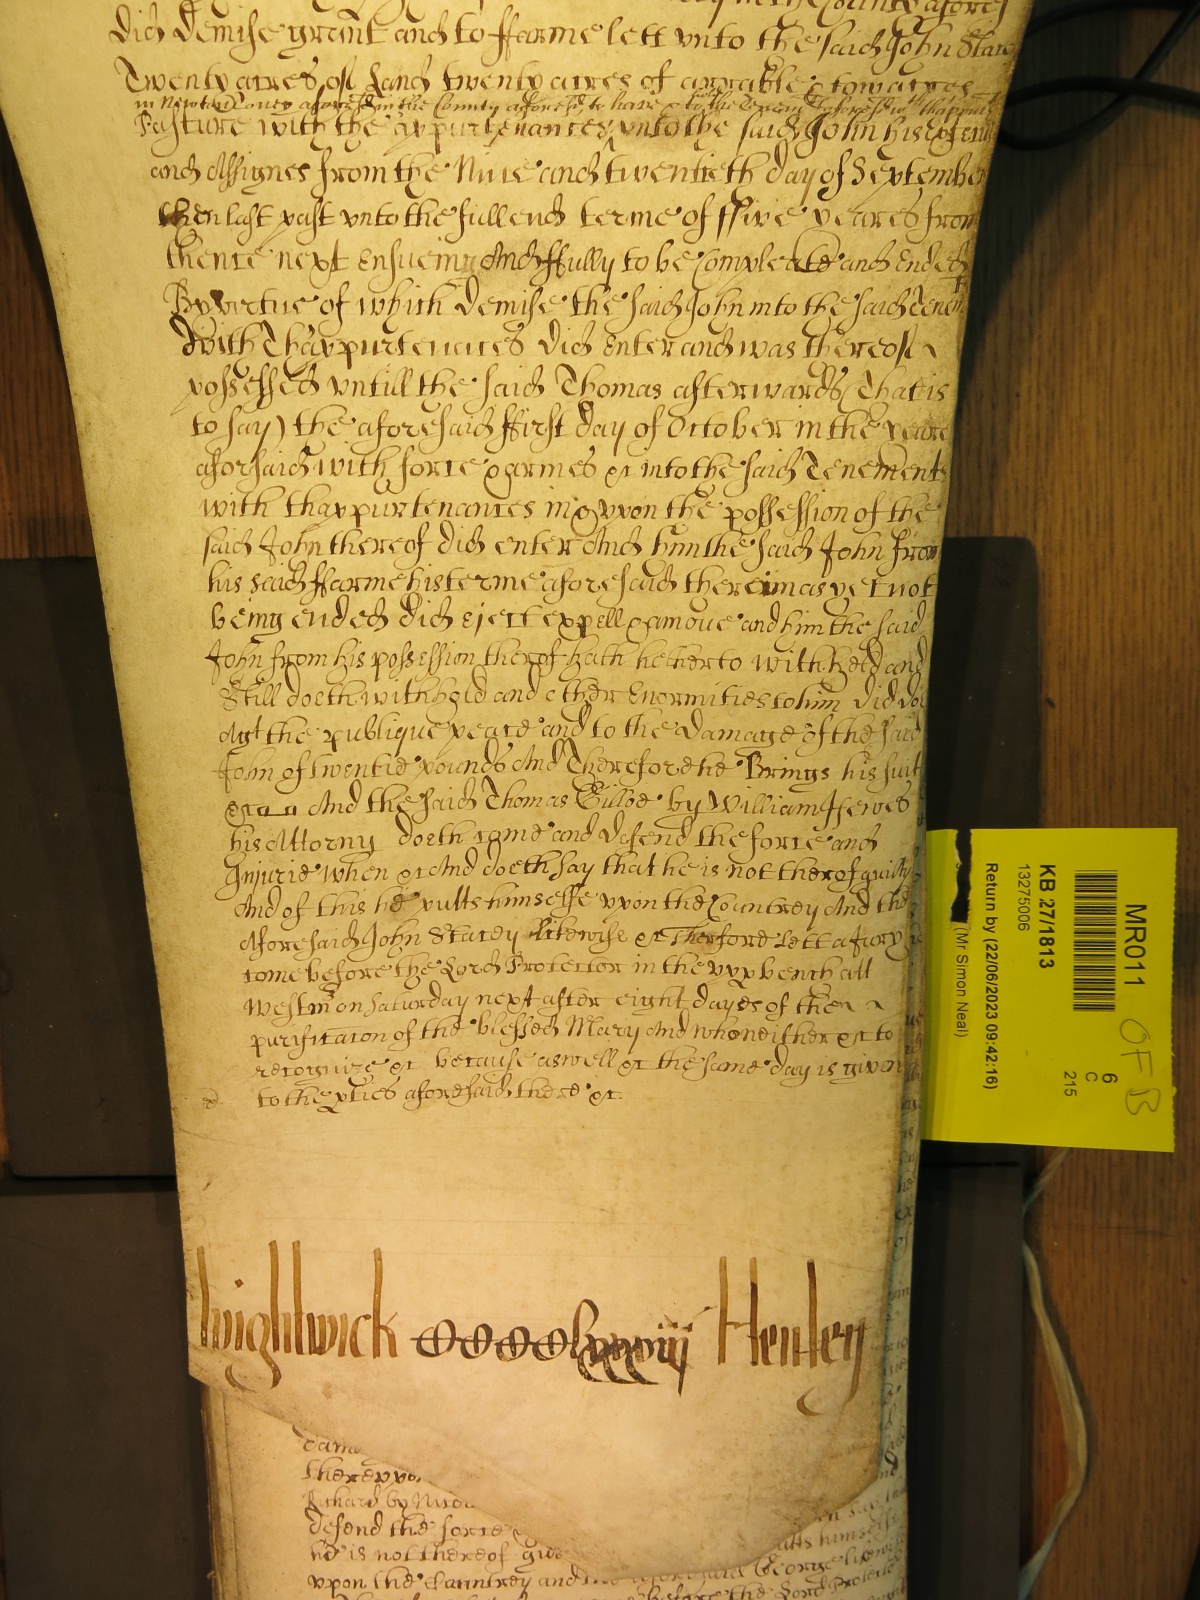 in the County afores
did demise grant and to ffarme lett unto the said John Stace
Twenty acres of Land twenty acres of arrable & tow acres
in Newton Loney aforesd in the County aforesd to have &
Pasture with the appurtenances unto the said John his
and Assignes from the Nine and twentieth day of September
then last past unto the full end terme of ffive yeares from
thence next Ensueing And ffully to be Compleate and Ended
By vertue of which demise the said John into the said Tenem
with Thappurtenances did Enter and was thereof
possessed untill the said Thomas afterwards (That is
to say) the aforesaid ffirst day of October in the yeare
aforsaid with force & armes &c into the said Tenements
with thappurtenances in & upon the possession of the
said John thereof did enter And him the said John from
his said ffarme his terme aforesaid therein as yet not
being ended did eject expell & amove and him the said
John from his possession therof hath hetherto withheld and
Still doeth withhold and other Enormities to him did doe
Agt the publique peace and to the damage of the said
John of twentie pounds And Therefore he Brings his suit
&c And the said Thomas Gilloe by William Hewes
his Attorny doeth come and defend the force and
Injurie when &c And doeth say that he is not therof guilty
And of this he putts himselfe upon the Countrey And the
Aforesaid John Stacey likewise &c Therfore Lett a Jury
come before the Lord Protector in the upp bench att
Westm on Saturday next after eight dayes of the
purificacon of the blessed Mary And who neither &c to
recognize &c because aswell &c the same day is given
to the pties aforesaid there &c
Wightwick Henley
dama
thereupo
Richard by Nico
defend the force
he is not thereof gui
putts himselfe
upon the Countrey and the aforesaid George likewi
before the Lord Protecto
MR011
OFB
6
C
215
KB 27/1813
13275006
Return by (22/06/2023 09:42:16)
(Mr Simon Neal)